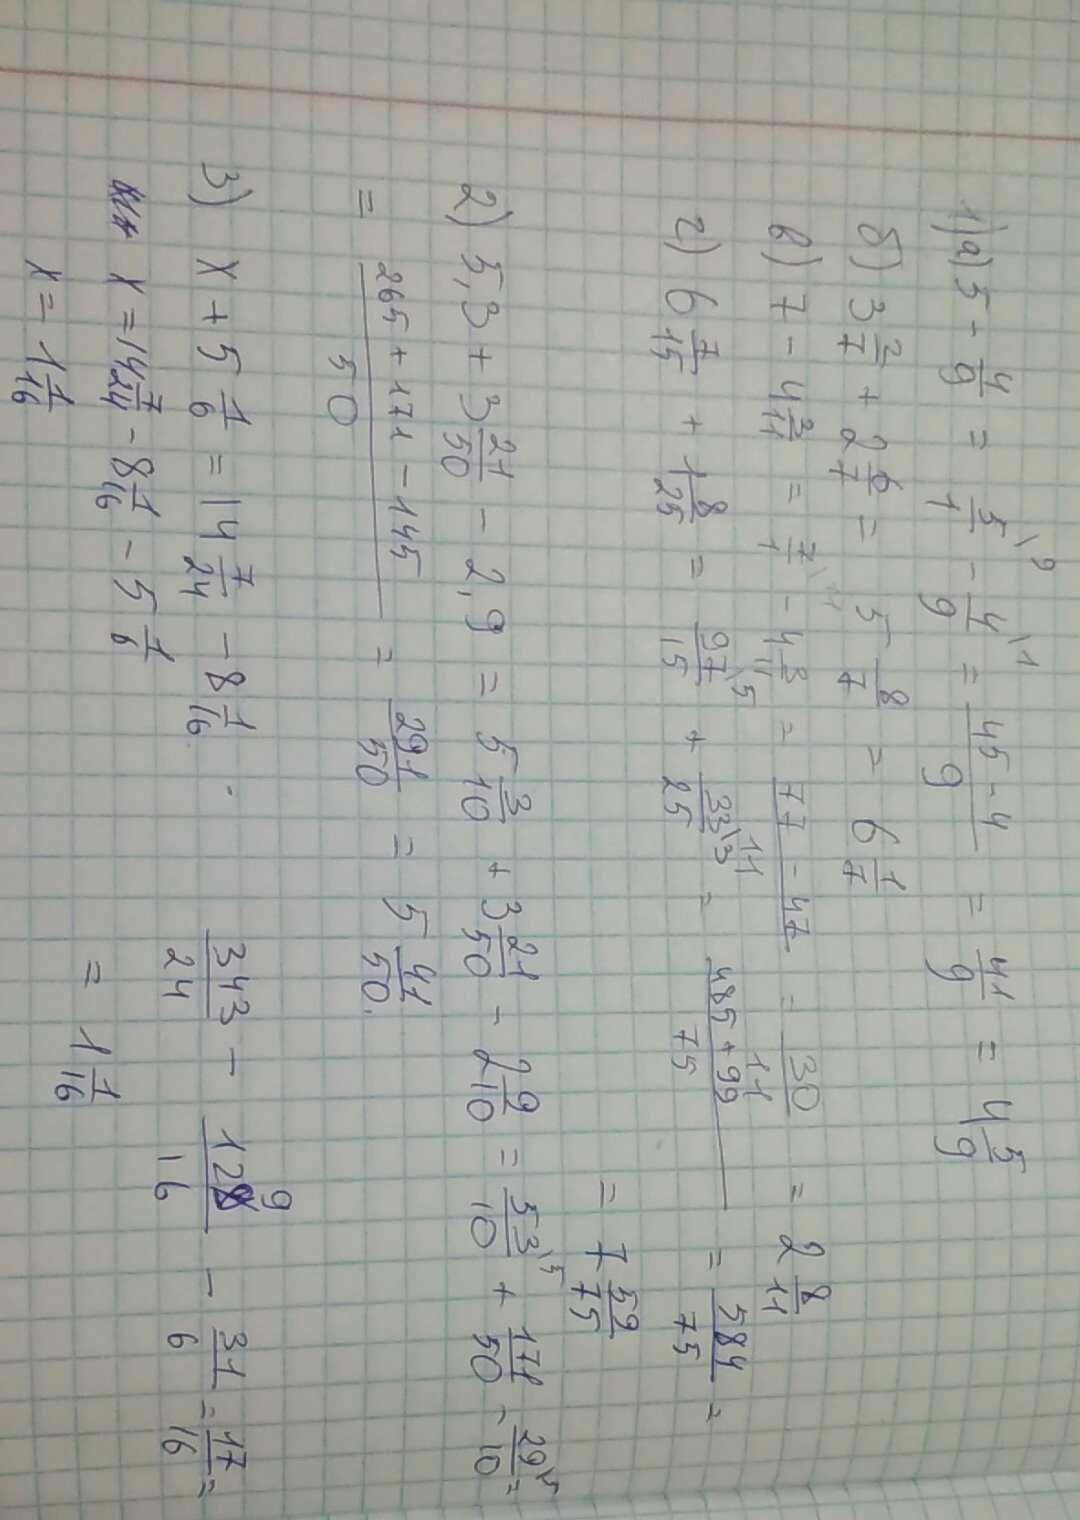 1) а) 5 - 4/9 = 5/1\9 - 4/9\1 = 45-4/9 = 41/9 = 4 5/9
б) 3 2/7 + 2 6/7 = 5 8/7 = 6 1/7
в) 7 - 4 3/11 = 7/1\11 - 4 3/11 = 77-47/11 = 30/11 = 2 8/11
г) 6 7/15 + 1 8/25 = 97/15\5 + 33/25\3 = 485+99/75 = 584/75 =
= 7 59/75
2) 5,3 + 3 21/50 - 2,9 = 5 3/10 + 3 21/50 - 2 9/10 = 53/10\5 + 171/50 - 29/10\5 =
= 265+171-145/50 = 291/50 = 5 41/50.
3) x + 5 1/6 = 14 7/24 - 8 1/16.
x = 14 7/24 - 8 1/16 - 5 1/6
343/24 - 129/16 - 31/6 = 17/16 =
= 1 1/16
x = 1 1/16